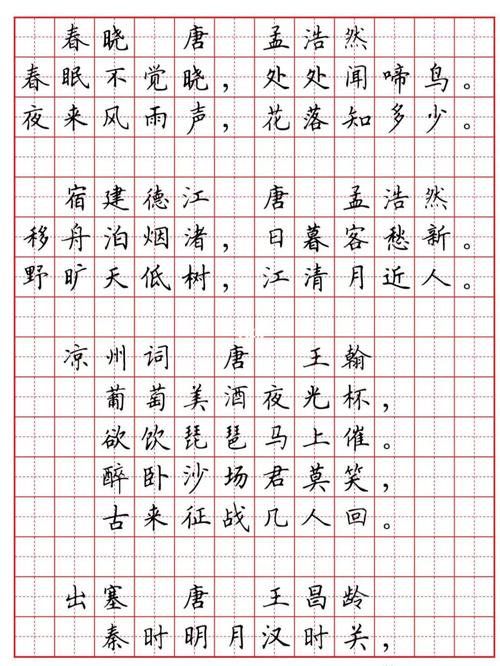 春晓 唐 孟浩然
春眠不觉晓，处处闻啼鸟。
夜来风雨声，花落知多少。
宿建德江 唐 孟浩然
移舟泊烟渚，日暮客愁新。
野旷天低树，江清月近人。
凉州词 唐 王翰
葡萄美酒夜光杯，
欲饮琵琶马上催。
醉卧沙场君莫笑，
古来征战几人回。
出塞 唐 王昌龄
秦时明月汉时关，